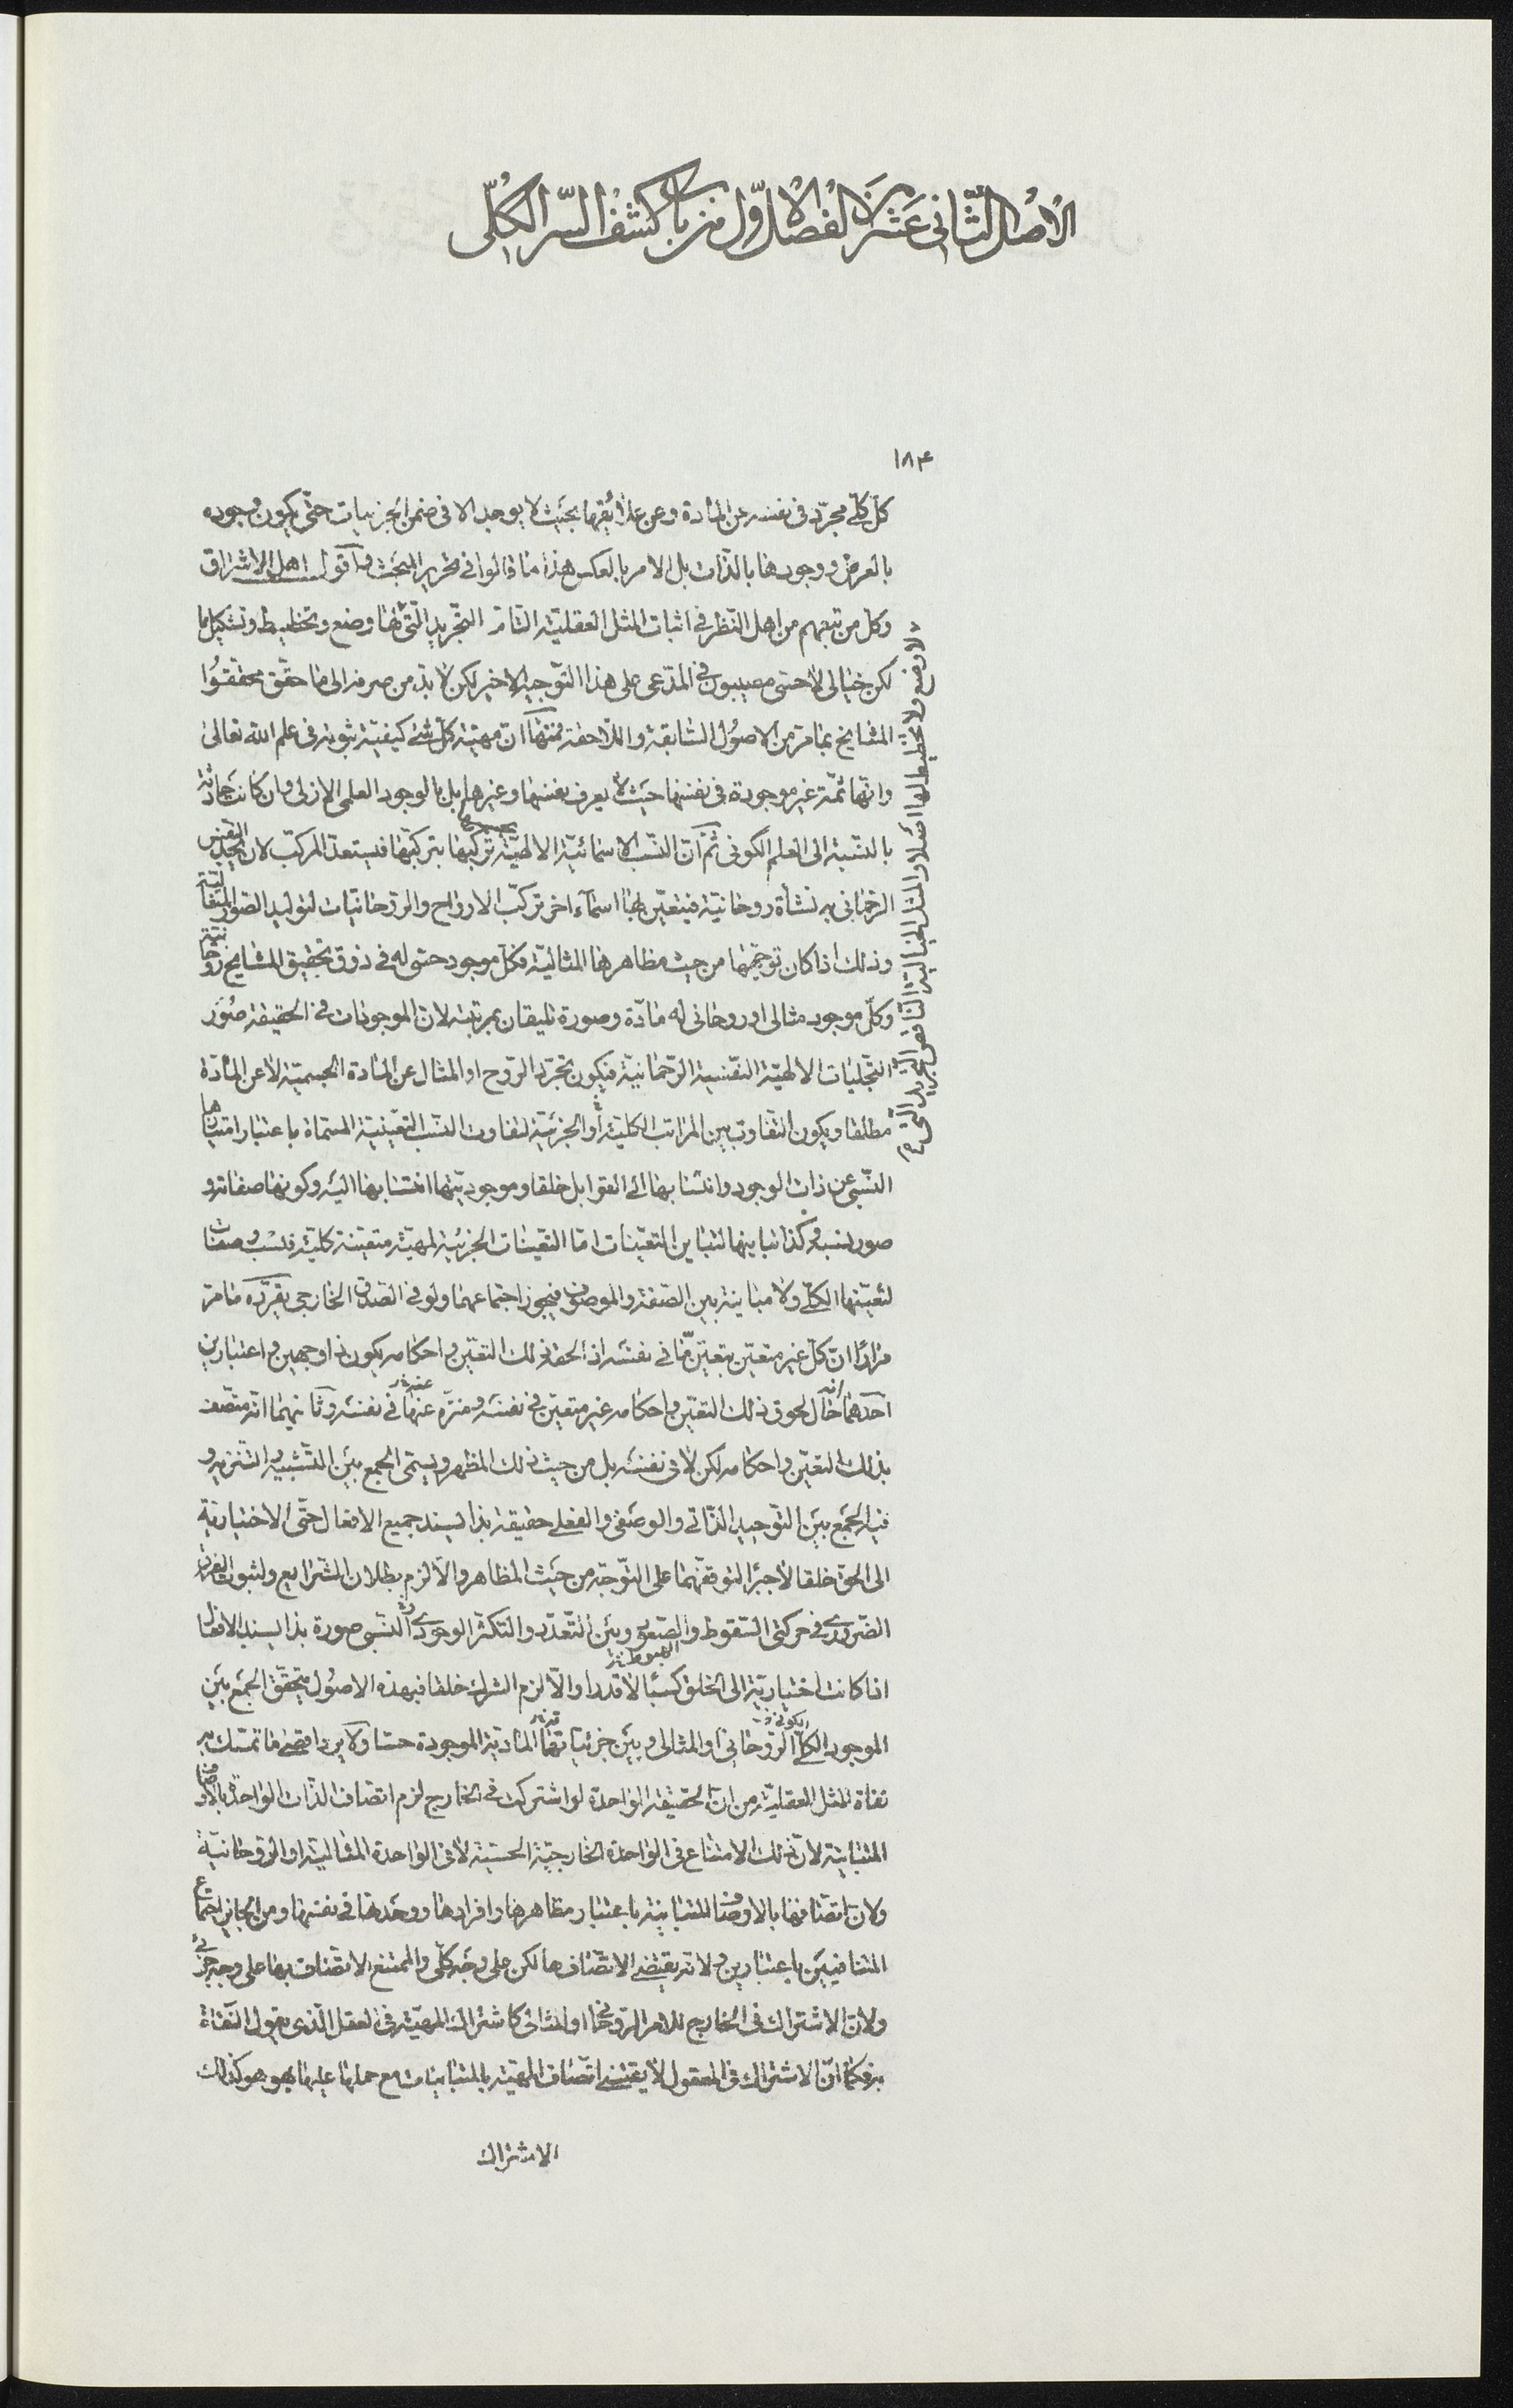 الاصل الثانی عشر من الفصل الاول من باب كشف السر الكلی
١٨۴
كل كلی مجرد فی نفسه عن المادة وعن علائقها بحيث لا يوجد الا فی ضمن الجزئيات حتی يكون وجوده
بالعرض ووجودها بالذات بل الامر بالعكس هذا ما قالوا فی تحرير المبحث واقول اهل الاشراق
وكل من تبعهم من اهل النظر فی اثبات المثل العقلية التامة التجريد التی لها وضع وتخطيط وتشكيل ما
لكن خيالی لا حسی مصيبون فی المدعی علی هذا التوجيه الاخير لكن لا بد من صرفه الی ما حقق محققوا
المشايخ بمامر من الاصول السابقة واللاحقة فمنها ان مهية كل شئ كيفية ثبوته فی علم الله تعالی
وانها ثمة غير موجودة فی نفسها حيث لا يعرف نفسها وغيرها بل بالوجود العلمی الازلی وان كانت حادثة
بالنسبة الی العلم الكونی ثم ان النسب الاسمائية الالهية تركبها بتركبها فيستعد المركب لان النفس
الرحمانی به نشأة روحانية فيتعين بها اسمآء اخر تركب الارواح والروحانيات لتوليد الصور المثالية
وذلك اذا كان توجهها من حيث مظاهرها المثالية فكل موجود حسی له فی ذوق تحقيق المشايخ روحانية
وكل موجود مثالی او روحانی له مادة وصورة تليقان بمرتبته لان الموجودات فی الحقيقة صور
التجليات الالهية النفسية الرحمانية فيكون تجرد الروح او المثال عن المادة الجسمية لا عن المادة
مطلقا ويكون التفاوت بين المراتب الكلية أو الجزئية لتفاوت النسب التعينية المسماة باعتبار امتيازها
النسبی عن ذات الوجود وانتسابها الی القوابل خلقا وموجوديتها انتسابها اليه وكونها صفاته و
صور نسبه وكذا تباينها لتباين التعينات اما التعينات الجزئية لمهية متعينة كلية فنسب وصفات
لتعينها الكلی ولا مباينة بين الصفة والموصوف فيجوز اجتماعهما ولو فی الصدق الخارجی بقرره مامر
مرارا ان كل غير متعين بتعين ما فی نفسه اذا لحقه ذلك التعين واحكامه يكون ذا وجهين واعتبارين
احدهما انه حال لحوق ذلك التعين واحكامه غير متعين فی نفسه ومنزه عنها فی نفسه وثانيهما انه متصف
بذلك التعين واحكامه لكن لا فی نفسه بل من حيث ذلك المظهر ويسمی الجمع بين التشبيه والتنزيه و
فيه الجمع بين التوحيد الذاتی والوصفی والفعلی حقيقة بذا يسند جميع الافعال حتی الاختيارية
الی الحق خلقا لا جبرا لتوقفهما علی التوجه من حيث المظاهر والا لزم بطلان الشرايع ولثبوت الفرق
الضروری فی حركتی السقوط والصعود وبين التعدد والتكثر الوجودی النسبی صورة بذا يسند الافعال
اذا كانت اختيارية الی الخلق كسبا لا قدرا والا لزم الشرك خلقا فبهذه الاصول يتحقق الجمع بين
الموجود الكلی الروحانی او المثالی وبين جزئياتها المادية الموجودة حسا ولا يرد اقصی ما تمسك به
نفاة المثل العقلية من ان الحقيقة الواحدة لو اشتركت فی الخارج لزم اتصاف الذات الواحدة بالاوصاف
المتباينة لان ذلك الامتناع فی الواحدة الخارجية الحسية لا فی الواحدة المثالية او الروحانية
ولان اتصافها بالاوصاف المتباينة باعتبار مظاهرها وافرادها ووحدتها فی نفسها ومن الجائز اجتماع
المتنافيين باعتبارين ولانه يقتضی الاتصاف بها لكن علی وجه كلی والممتنع الاتصاف بها علی وجه جزئی
ولان الاشتراك فی الخارج للامر الروحانی او المثالی كاشتراك المهية فی العقل الذی يقول النفاة
به فكما ان الاشتراك فی المعقول لا يقتضی اتصاف المهية بالمتباينات مع حملها عليها بهو هو كذلك
الاشتراك
لا وضع ولا تخطيط لها اصلا والمثل الخيالية الناقص التجريد التی